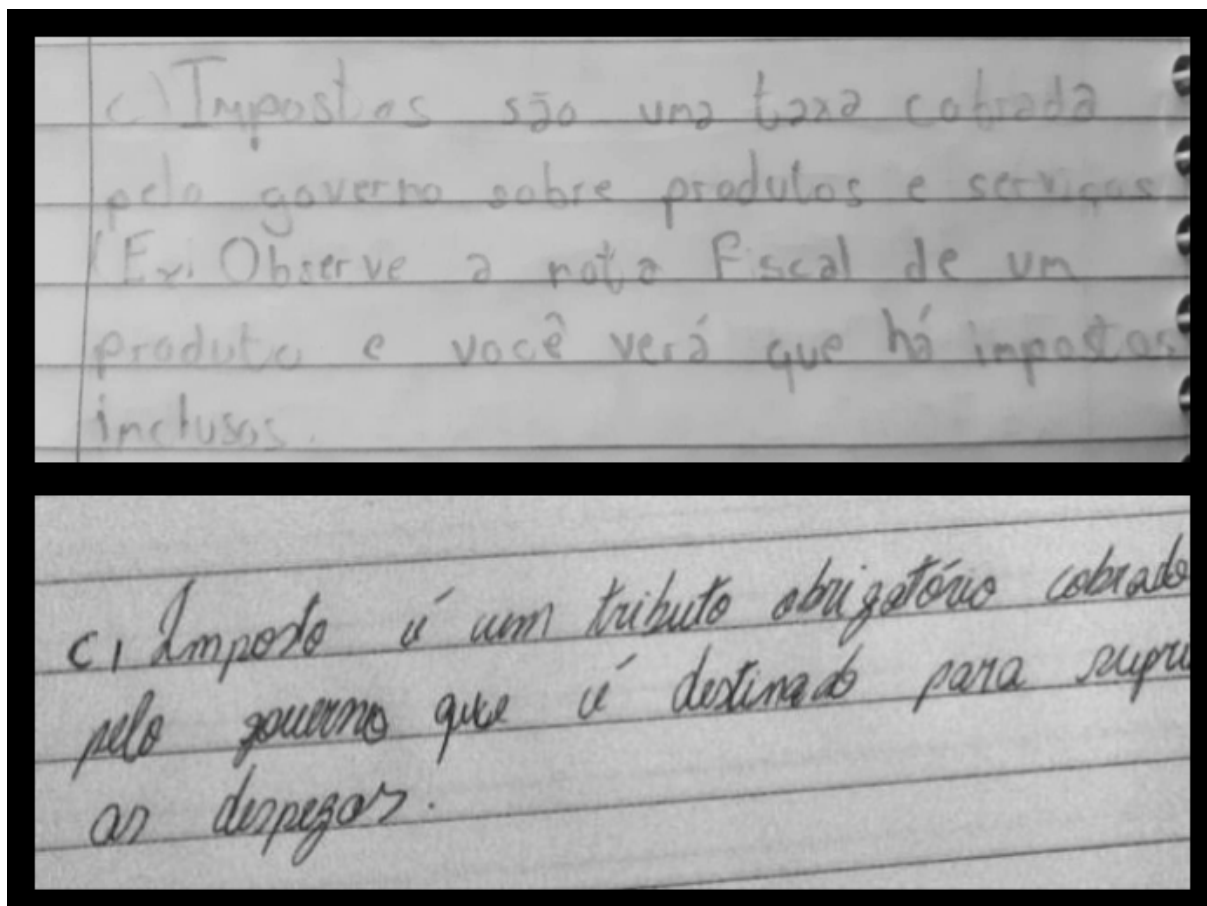 c) Impostos são uma taxa cobrada
pelo governo sobre produtos e serviços
(Ex: Observe a nota Fiscal de um
produto e você verá que há impostos
inclusos.
c) Imposto é um tributo obrigatório cobrado
pelo governo que é destinado para supri
as despezas.